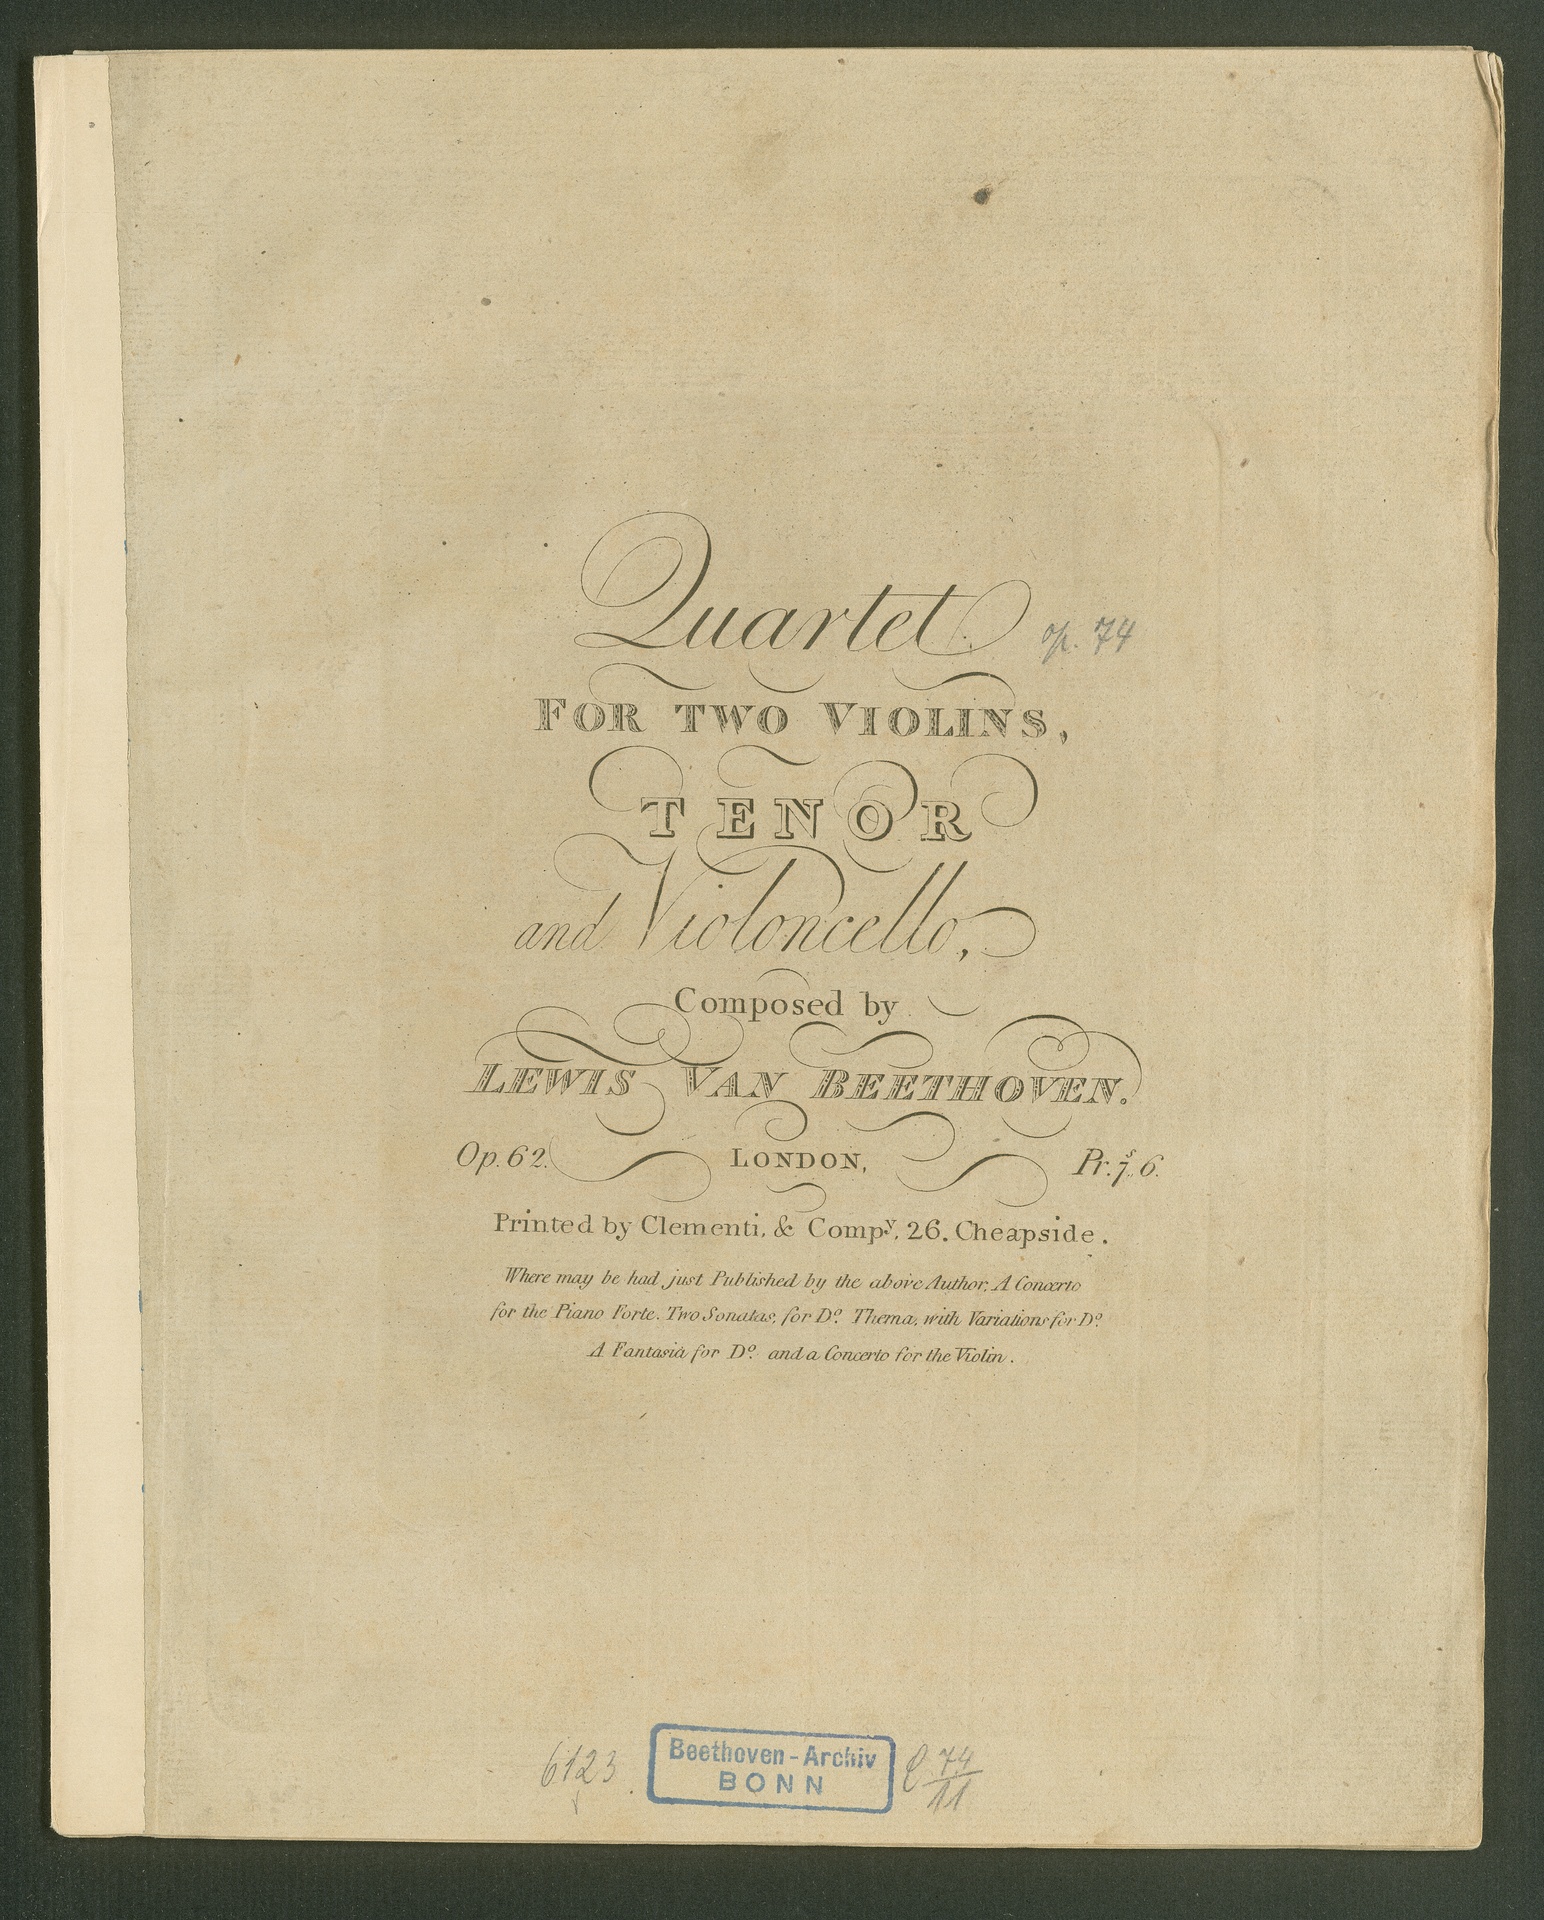 Quartet op. 74
FOR TWO VIOLINS,
TENOR
and Violoncello,
Composed by
LEWIS VAN BEETHOVEN.
Op. 62. LONDON, Pr. 7s. 6.
Printed by Clementi, & Compy. 26. Cheapside.
Where may be had just Published by the above Author, A Concerto
for the Piano Forte. Two Sonatas, for Do. Thema, with Variations for Do.
A Fantasia for Do. and a Concerto for the Violin.
6123 Beethoven-Archiv C 74/11
BONN